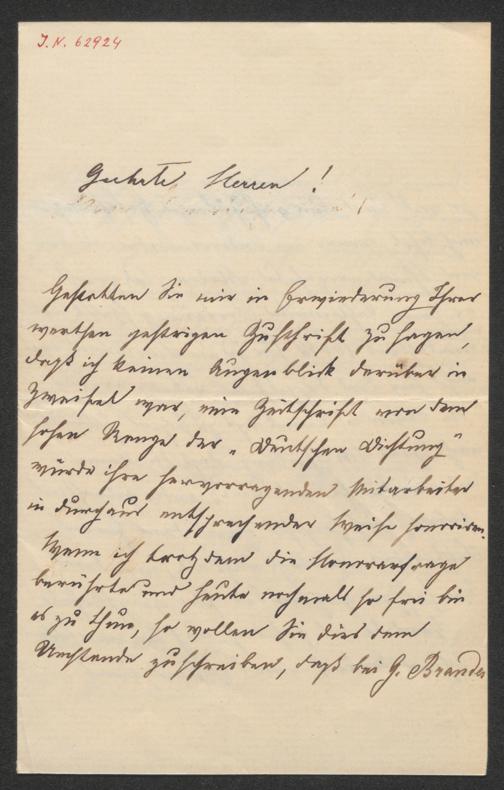 J. N. 62924
Geehrte Herren!
Gestatten Sie mir in Erwiederung Ihrer
werthen gestrigen Zuschrift zu sagen,
daß ich keinen Augenblick darüber in
Zweifel war, eine Zeitschrift von dem
hohen Range der „Deutschen Dichtung"
würde ihre hervorragenden Mitarbeiter
in durchaus entsprechender Weise honoriren.
Wenn ich trotzdem die Honorarfrage
berührte und heute nochmals so frei bin
es zu thun, so wollen Sie dies dem
Umstande zuschreiben, daß bei G. Brandes